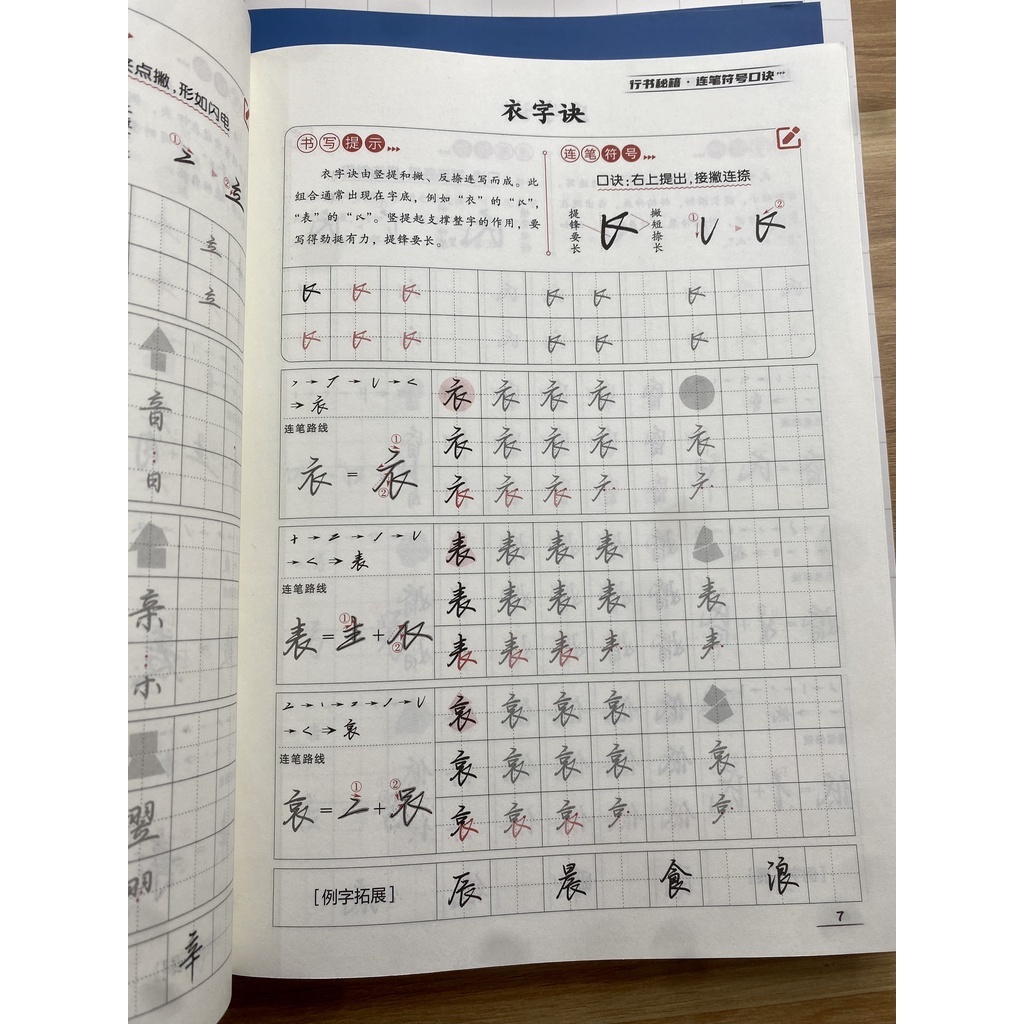 点撇，形如闪电
①
②
立
立
音
日
亲
木
翌
明
辛
行书秘籍·连笔符号口诀
衣字诀
书写提示
衣字诀由竖提和撇、反捺连写而成。此
组合通常出现在字底，例如“衣”的“𧘇”，
“表”的“𧘇”。竖提起支撑整字的作用，要
写得劲挺有力，提锋要长。
连笔符号
口诀：右上提出，接撇连捺
提锋要长
撇短捺长
①
②
衣 衣 衣 衣 衣
连笔路线
衣 衣 衣 衣 衣
衣 = 衣
①
②
衣 衣 衣
表 表 表 表 表
连笔路线
表 表 表 表 表
表 = 龶 + 𧘇
①
②
表 表 表
哀 哀 哀 哀 哀
连笔路线
哀 哀 哀 哀 哀
哀 = 亠 +
①
②
哀 哀 哀
［例字拓展］ 辰 晨 食 浪
7